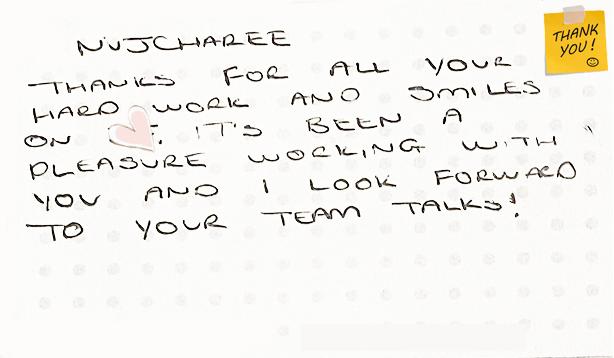 NUJCHAREE
THANKS FOR ALL YOUR
HARD WORK AND SMILES
ON . IT'S BEEN A
PLEASURE WORKING WITH
YOU AND I LOOK FORWARD
TO YOUR TEAM TALKS!
THANK
YOU!